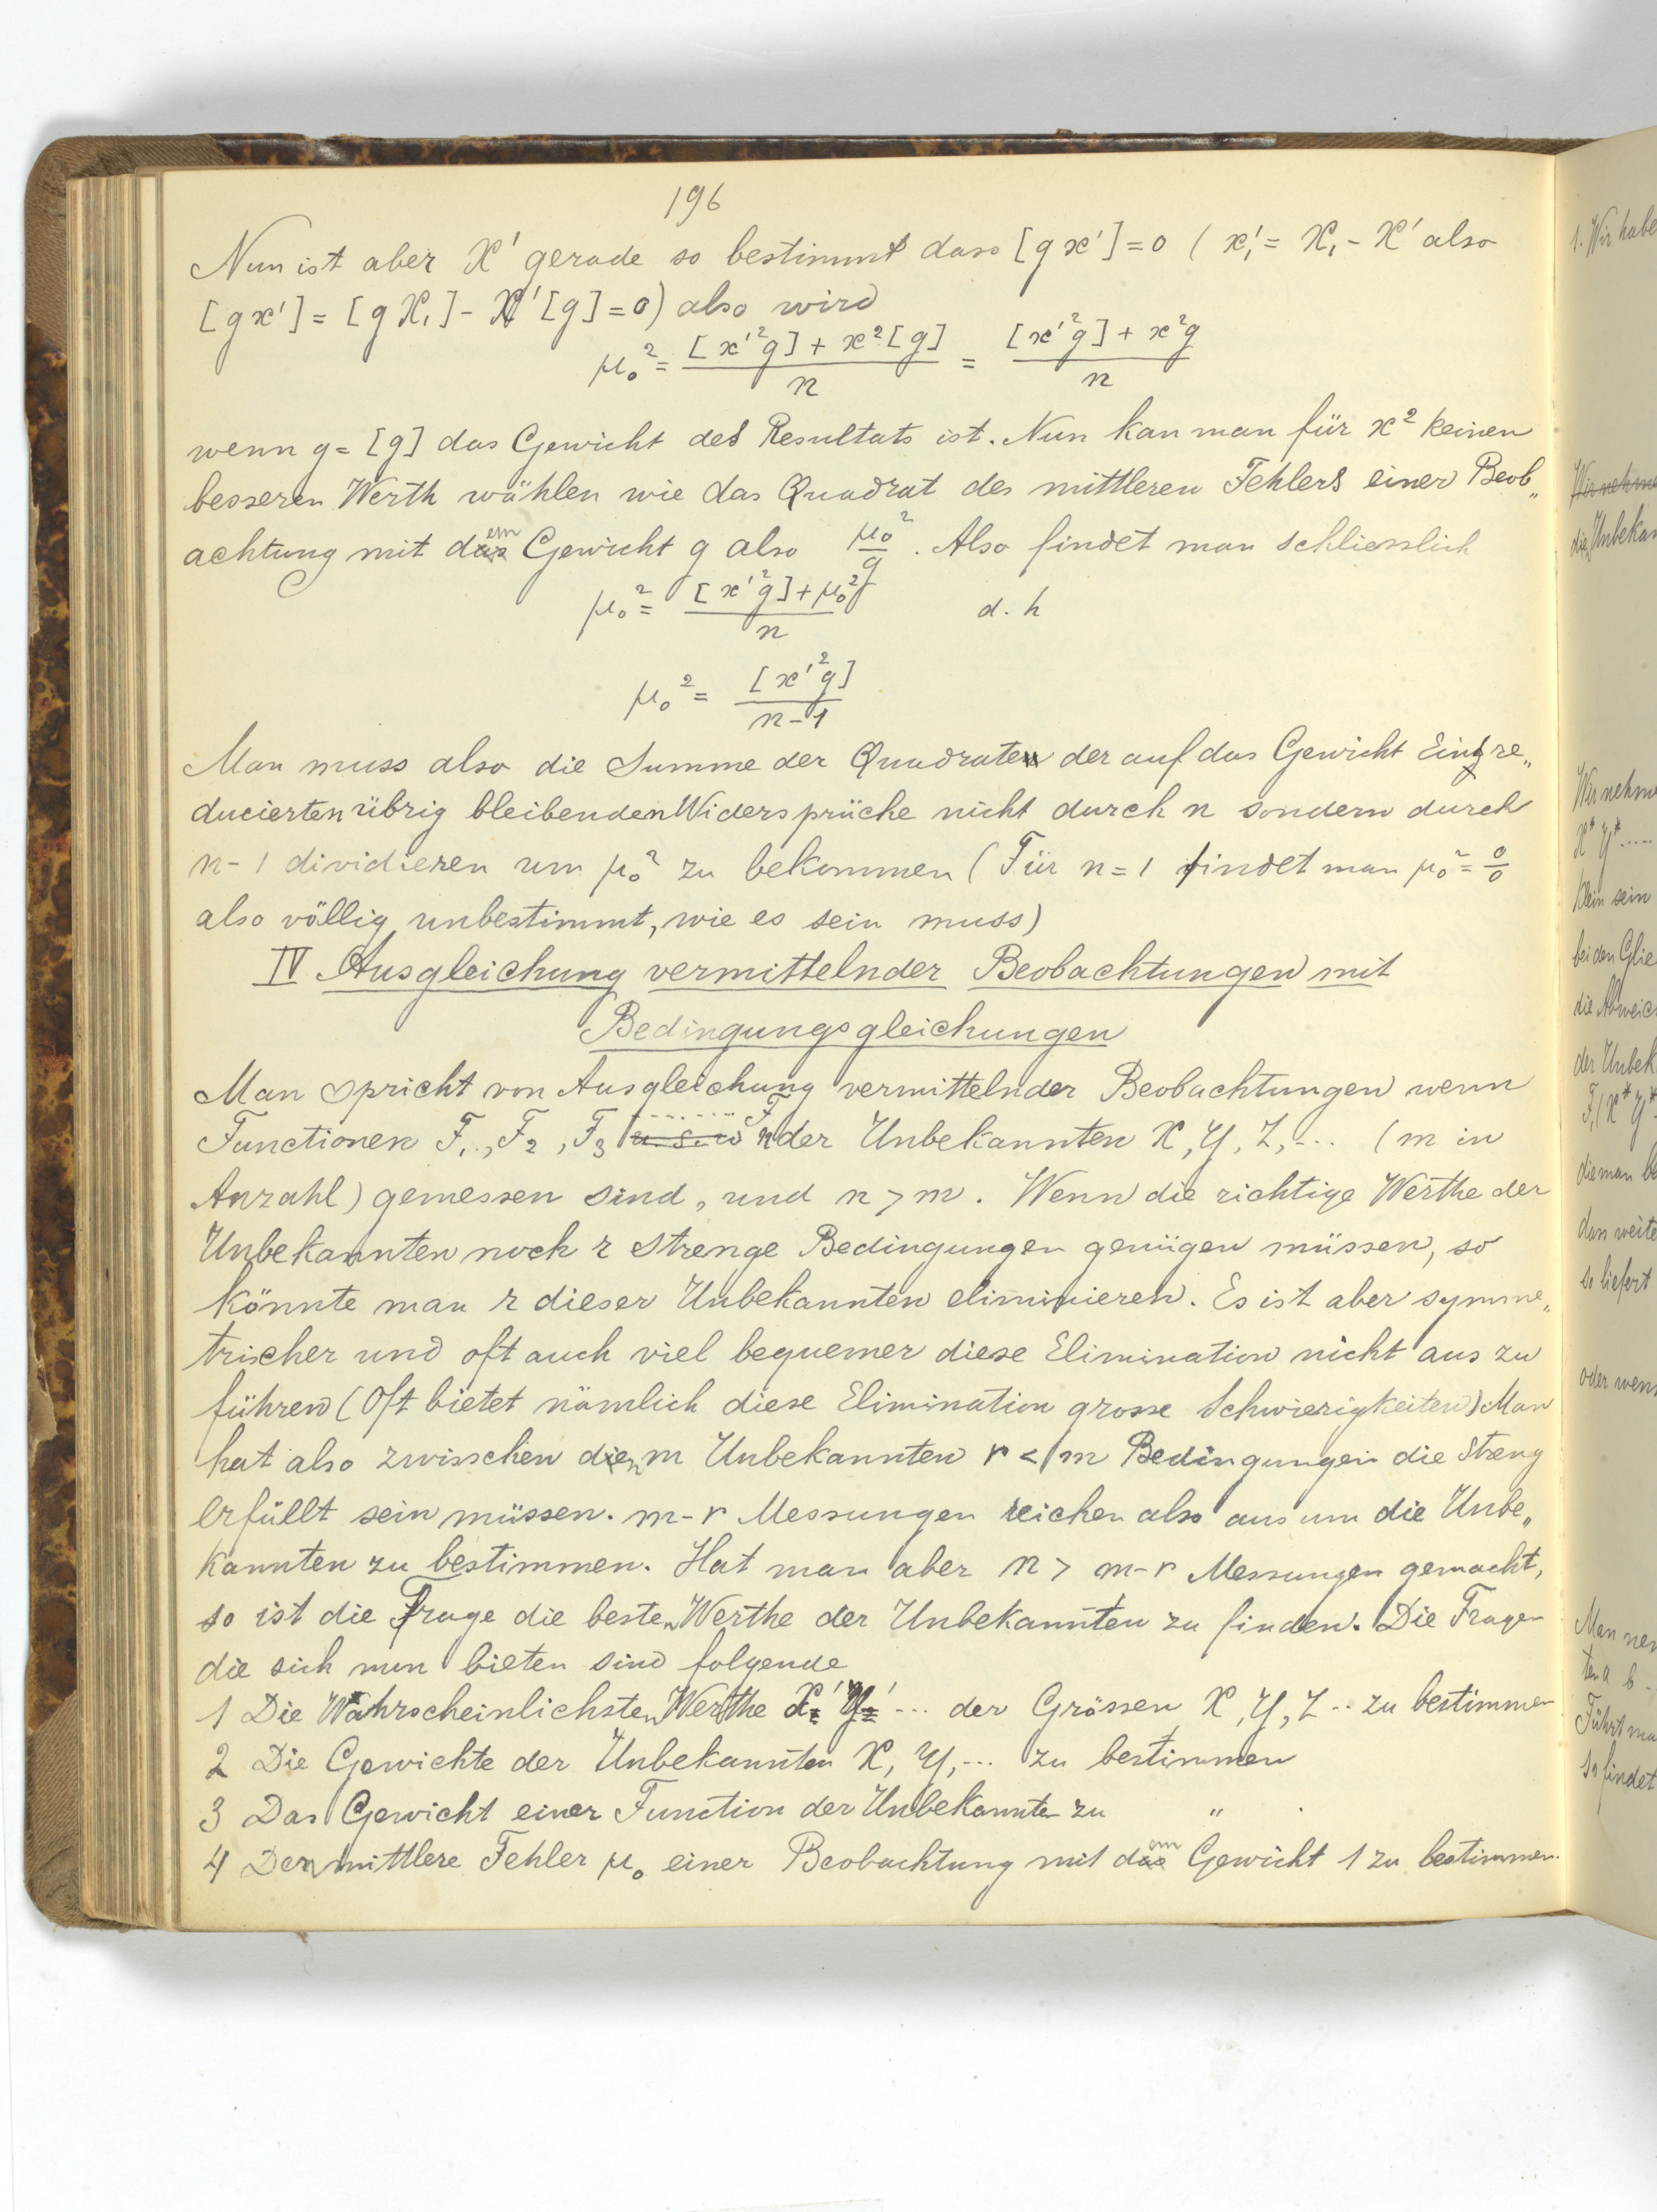 196
Nun ist aber X' gerade so bestimmt dass [gx'] = 0 ( x₁' = X₁ - X' also
[gx'] = [gX₁] - X'[g] = 0) also wird
μ₀² = ([x'²g] + x²[g])/n = ([x'²g] + x²g)/n
wenn g = [g] das Gewicht des Resultats ist. Nun kan man für x² keinen
besseren Werth wählen wie das Quadrat des mittleren Fehlers einer Beob„
achtung mit dem Gewicht g also μ₀²/g. Also findet man schliesslich
μ₀² = ([x'²g] + μ₀²)/n d. h
μ₀² = [x'²g]/(n-1)
Man muss also die Summe der Quadrate der auf das Gewicht Eins re„
ducierten übrig bleibenden Widersprüche nicht durch n sondern durch
n-1 dividieren um μ₀² zu bekommen (Für n=1 findet man μ₀² = 0/0
also völlig unbestimmt, wie es sein muss)
IV Ausgleichung vermittelnder Beobachtungen mit
Bedingungsgleichungen
Man spricht von Ausgleichung vermittelnder Beobachtungen wenn
Functionen F₁, F₂, F₃ ....... Fn der Unbekannten X, Y, Z, ... (m in
Anzahl) gemessen sind, und n > m. Wenn die richtige Werthe der
Unbekannten noch r strenge Bedingungen genügen müssen, so
könnte man r dieser Unbekannten eliminieren. Es ist aber symme„
trischer und oft auch viel bequemer diese Elimination nicht aus zu
führen (Oft bietet nämlich diese Elimination grosse Schwierigkeiten) Man
hat also zwisschen den m Unbekannten r < m Bedingungen die Streng
erfüllt sein müssen. m-r Messungen reichen also aus um die Unbe„
kannten zu bestimmen. Hat man aber n > m-r Messungen gemacht,
so ist die Frage die besten Werthe der Unbekannten zu finden. Die Fragen
die sich nun bieten sind folgende
1 Die Wahrscheinlichsten Werthe X' Y' ... der Grössen X, Y, Z .. zu bestimmen
2 Die Gewichte der Unbekannten X, Y, ... zu bestimmen
3 Das Gewicht einer Function der Unbekannten zu "
4 Den mittlere Fehler μ₀ einer Beobachtung mit dem Gewicht 1 zu bestimmen.
1. Wir habe
Wir nehme
die Unbekan
Wir nehme
X* Y* .....
klein sein
bei den Glie
die Abweic
der Unbek
F₁(X* Y*
die man be
dan weite
so liefert
oder wen
Man nen
ten a b
Führt ma
so findet